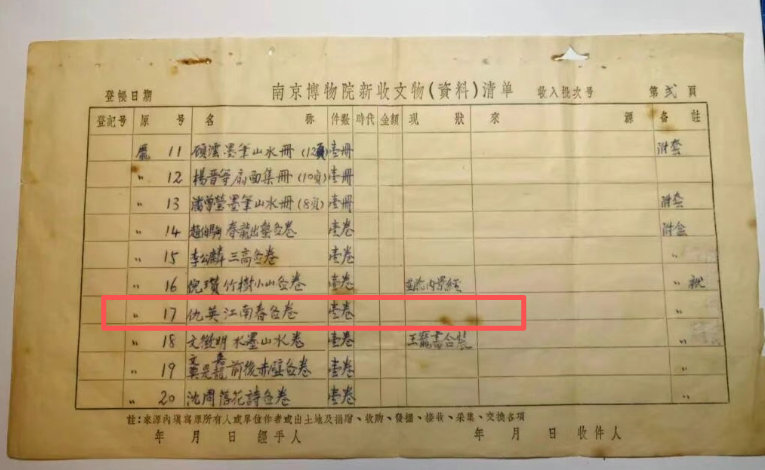 南京博物院新收文物(資料)清单
登帳日期 收入批次号 第 弍 頁
登記号 原号 名称 件数 時代 金額 現狀 來源 备註
龐 11 顧澐墨筆山水冊(12頁) 壹冊 附套
〃 12 楊晋等扇面集冊(10頁) 壹冊
〃 13 潘曾瑩墨筆山水冊(8頁) 壹冊 附套
〃 14 趙伯駒春龍出蟄 卷 壹卷 附盒
〃 15 李公麟三高 卷 壹卷 〃
〃 16 倪瓚竹樹小山 卷 壹卷 〃
〃 17 仇英江南春 卷 壹卷 〃
〃 18 文徵明水墨山水卷 壹卷 王寵書合裝 〃
〃 19 文嘉 前後赤壁 卷 壹卷 〃
〃 20 沈周落花詩 卷 壹卷 〃
註:來源內填寫原所有人或單位作者或出土地及捐贈、收購、發掘、接收、采集、交換各項
年 月 日 經手人 年 月 日 收件人